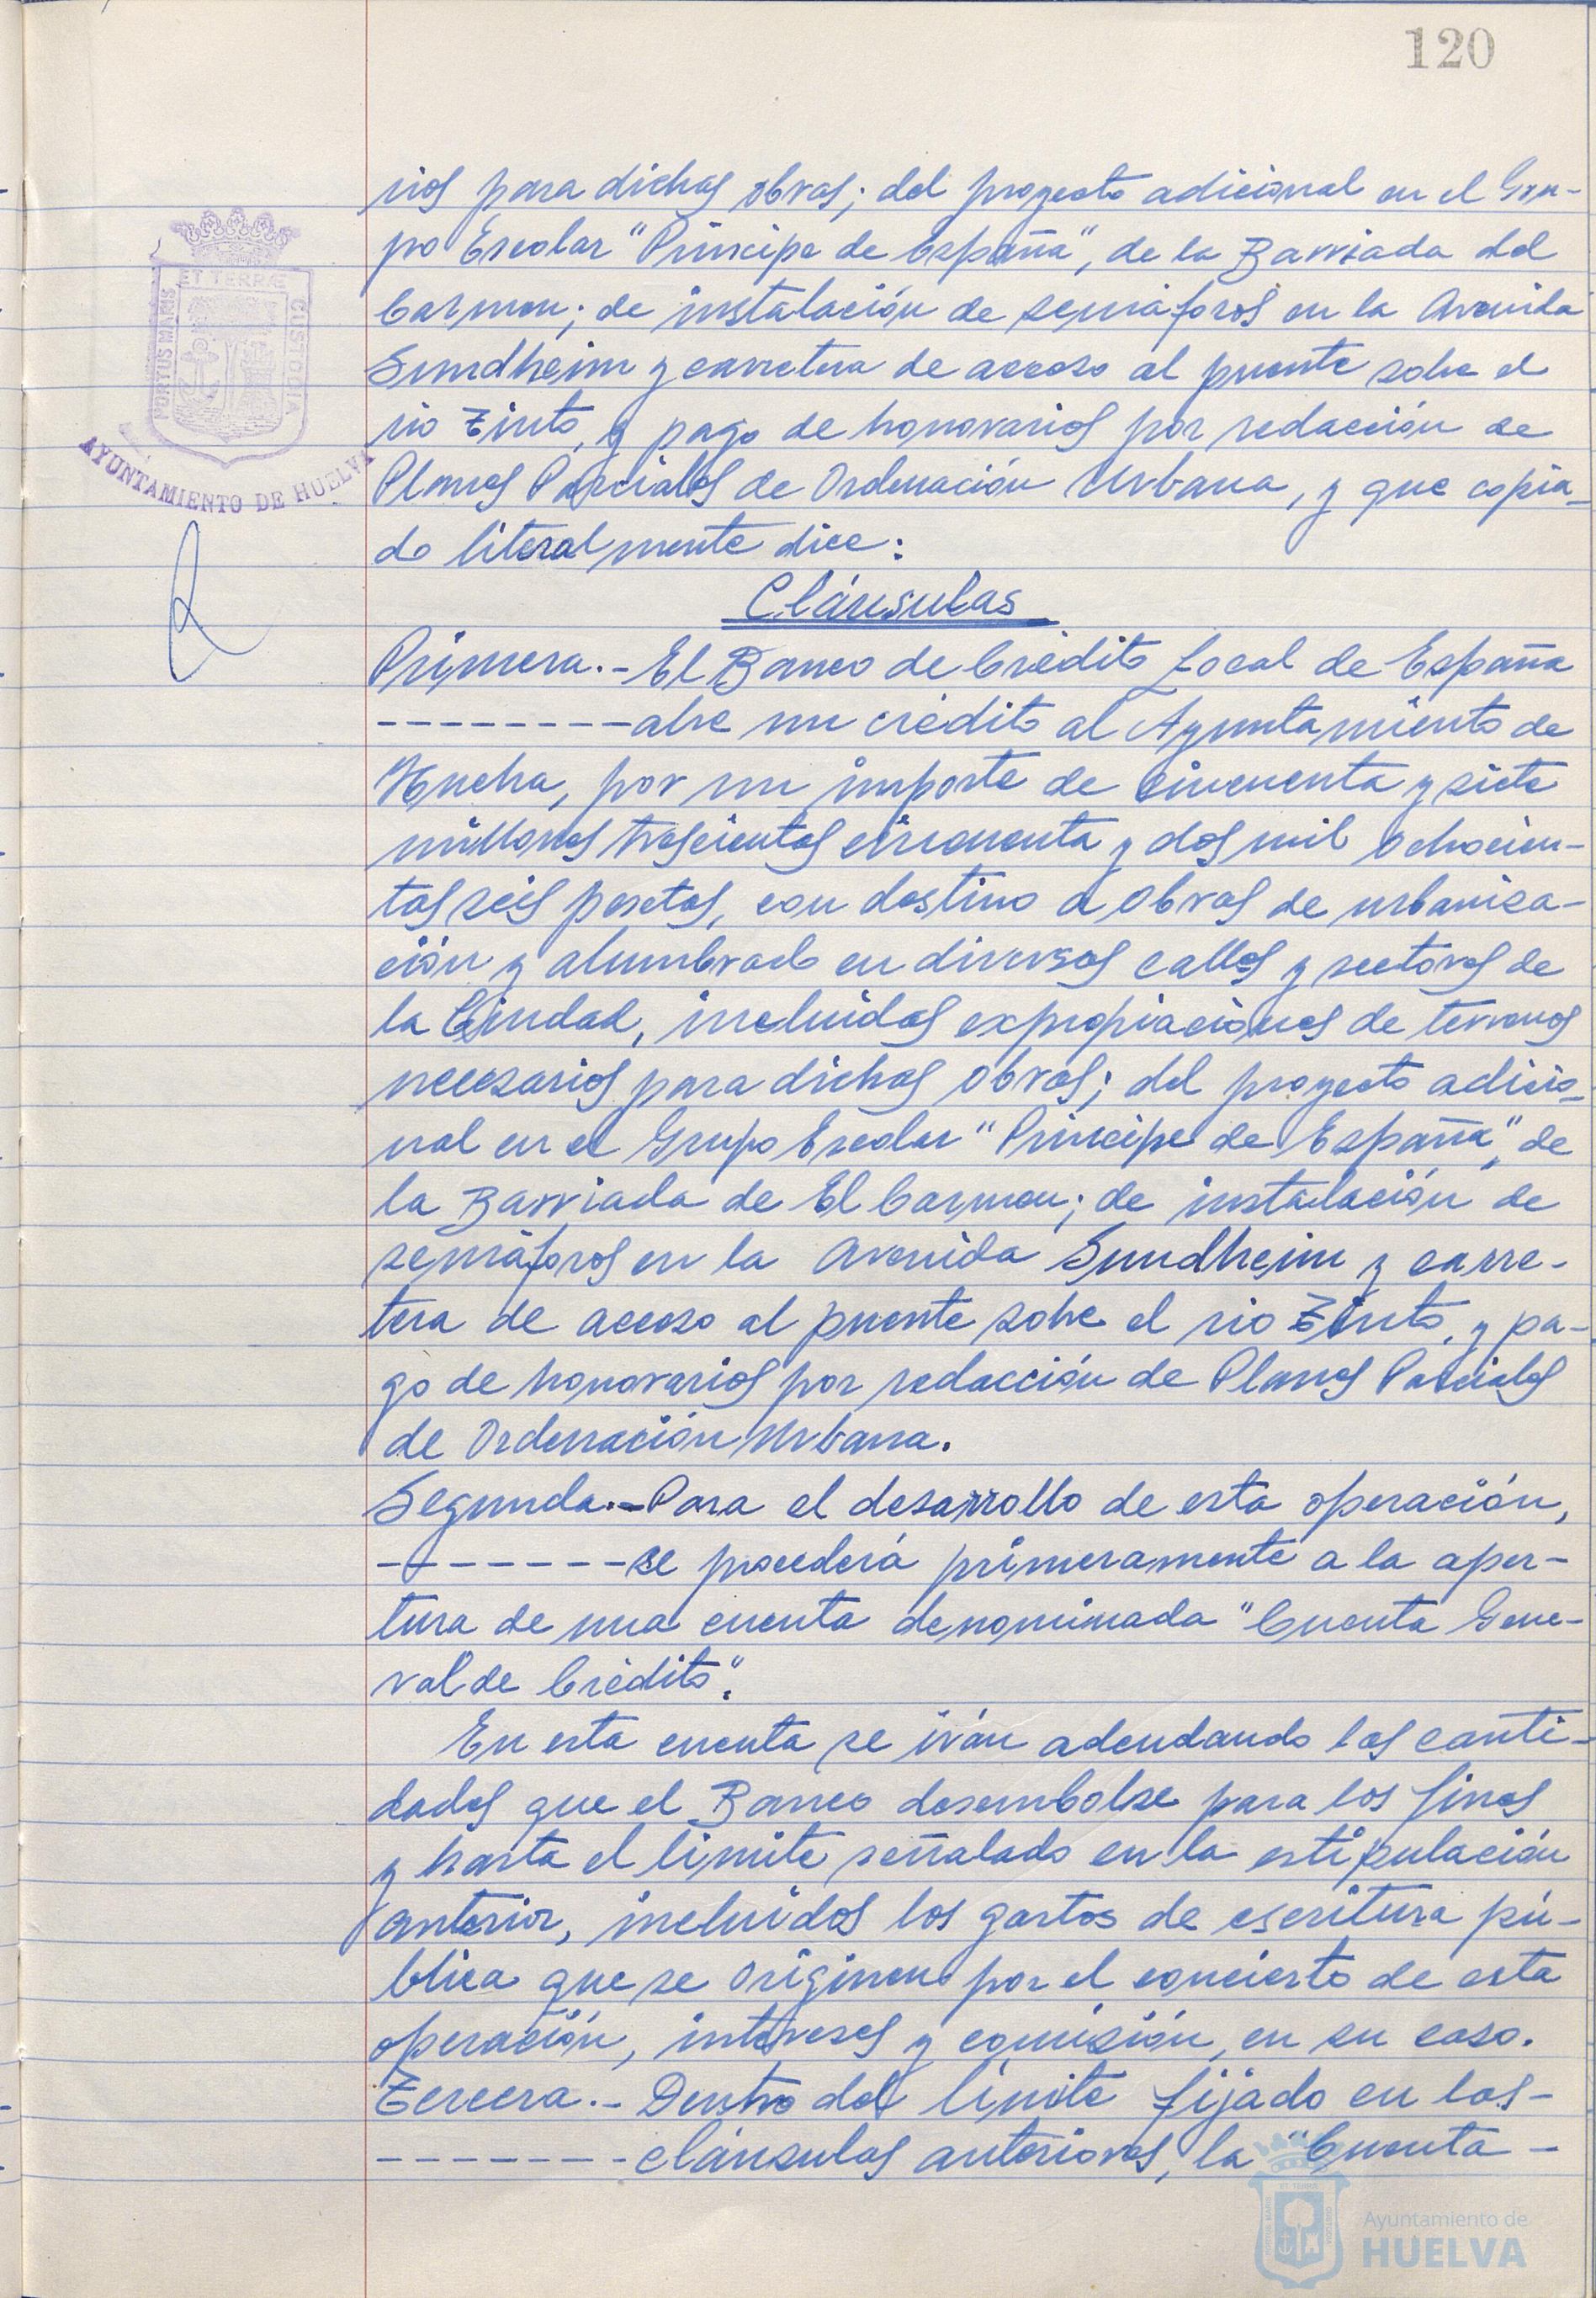 120
rios para dichas obras; del proyecto adicional en el Gru-
po Escolar "Príncipe de España", de la Barriada del
Carmen; de instalación de semáforos en la Avenida
Sundheim y carretera de acceso al puente sobre el
rio Tinto, y pago de honorarios por redacción de
Planes Parciales de Ordenación Urbana, y que copia-
do literalmente dice:
Cláusulas
Primera.- El Banco de Crédito Local de España
-------- abre un crédito al Ayuntamiento de
Huelva, por un importe de cincuenta y siete
millones trescientas cincuenta y dos mil ochocien-
tas seis pesetas, con destino a obras de urbaniza-
ción y alumbrado en diversas calles y sectores de
la Ciudad, incluidas expropiaciones de terrenos
necesarios para dichas obras; del proyecto adicio-
nal en el Grupo Escolar "Príncipe de España", de
la Barriada de El Carmen; de instalación de
semáforos en la Avenida Sundheim y carre-
tera de acceso al puente sobre el rio Tinto, y pa-
go de honorarios por redacción de Planes Parciales
de Ordenación Urbana.
Segunda.- Para el desarrollo de esta operación,
-------- se procederá primeramente a la aper-
tura de una cuenta denominada "Cuenta Gene-
ral de Crédito".
En esta cuenta se irán adeudando las canti-
dades que el Banco desembolse para los fines
y hasta el límite señalado en la estipulación
anterior, incluidos los gastos de escritura pú-
blica que se originen por el concierto de esta
operación, intereses y comisión, en su caso.
Tercera.- Dentro del límite fijado en las-
-------- cláusulas anteriores, la "Cuenta -
ET TERRÆ
PORTUS MARIS
CUSTODIA
AYUNTAMIENTO DE HUELVA
Ayuntamiento de
HUELVA